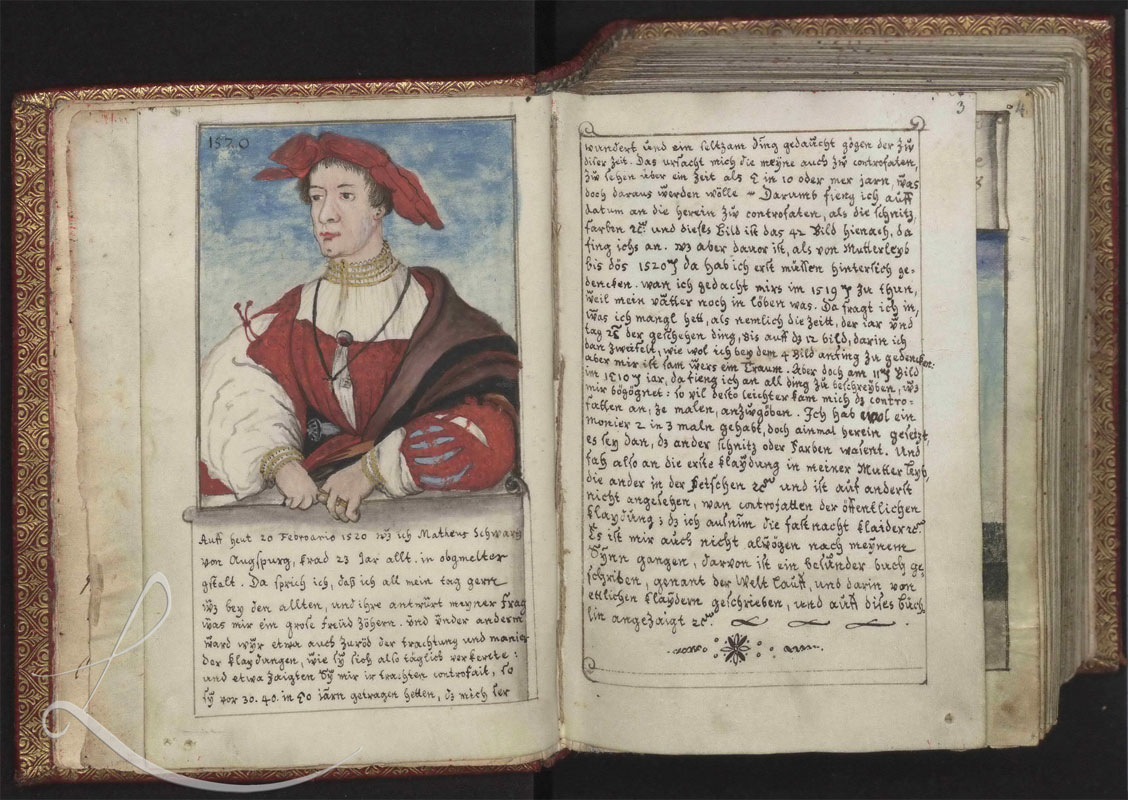 1520
Auff heut 20 Febroario 1520 wz ich Matheus Schwarz
von Augspurg, krad 23 Jar allt. in obgmelter
gstalt. Da sprich ich, deß ich all mein tag gern
wz bey den allten, und ihre antwürt meyner frag
was mir ein grose freüd zöhern. Und under anderm
ward wyr etwa auch zuröd der trachtung und manier
der klaydungen, wie sy sich also täglich verkerte:
und etwa zaigten sy mir ir trachten controfait, so
sy vor 30. 40. in 50 jarn getragen hetten, dz mich ser
3
4
wundert und ein seltzam ding gedaucht gögen der zů
diser zeit. Das ursacht mich die meyne auch zů controfaten,
zů sehen über ein zeit als 5 in 10 oder mer jarn, was
doch daraus werden wölle ~ Darumb fieng ich auff
datum an die herein zů controfaten, als die schnitz,
farben ꝛc und dises Bild ist das 42 Bild hienach, da
fing ichs an. wz aber davor ist, als von Mutterleyb
bis dös 1520 da hab ich erst müssen hintersich ge-
dencken. wan ich gedacht mirs im 1519 zu thun,
weil mein vatter noch in löben was. Da fragt ich in,
was ich mangl hett, als nemlich die Zeitt, der iar und
tag ꝛc der geschehen ding, bis auff dz 12 bild, darin ich
dan zweifelt, wie wol ich bey dem 4 Bild anfing zu gedencken:
aber mir ist sam wers ein Traum. Aber doch am 11 Bild
im 1510 jar, da fieng ich an all ding zu beschreyben, wz
mir bögögnet: so vil desto leichter kam mich dz contro-
fatten an, ze malen, anzwgöben. Ich hab wol ein
monier 2 in 3 maln gehabt, doch ainmal herein gesetzt,
es sey dan, dz ander schnitz oder farben waient. Und
fah also an die erste klaydung in meiner Mutter leyb,
die ander in der Fetschen ꝛc und ist auf anderst
nicht angesehen, wan controfatten der öffentlichen
klaydung; dz ich ausnim die fastnacht klaider ꝛc
Es ist mir auch nicht alwögen nach meynem
Synn gangen, darvon ist ein besünder buch ge-
schriben, genant der Welt lauff, und darin von
ettlichen klaydern geschrieben, und auff dises büch
lin angezaigt ꝛc